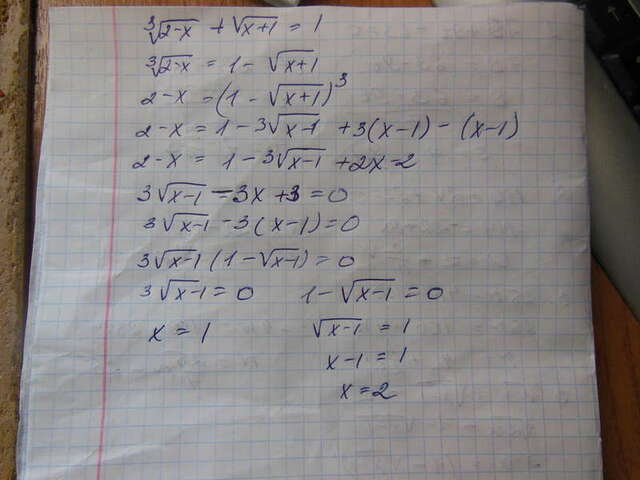 ∛(2-x) + √(x+1) = 1
∛(2-x) = 1 - √(x+1)
2-x = (1 - √(x+1))³
2-x = 1 - 3√(x-1) + 3(x-1) - (x-1)
2-x = 1 - 3√(x-1) + 2x-2
3√(x-1) - 3x + 3 = 0
3√(x-1) - 3(x-1) = 0
3√(x-1) (1 - √(x-1)) = 0
3√(x-1) = 0 1 - √(x-1) = 0
x = 1 √(x-1) = 1
x-1 = 1
x = 2